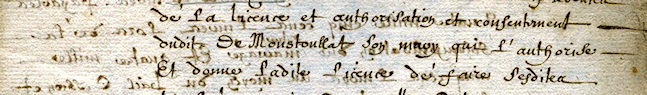 de La licence et authorisation et consentement
dudit De Moustoullat son mary qui L'authorise
Et donne Ladite Licence de faire Lesdites